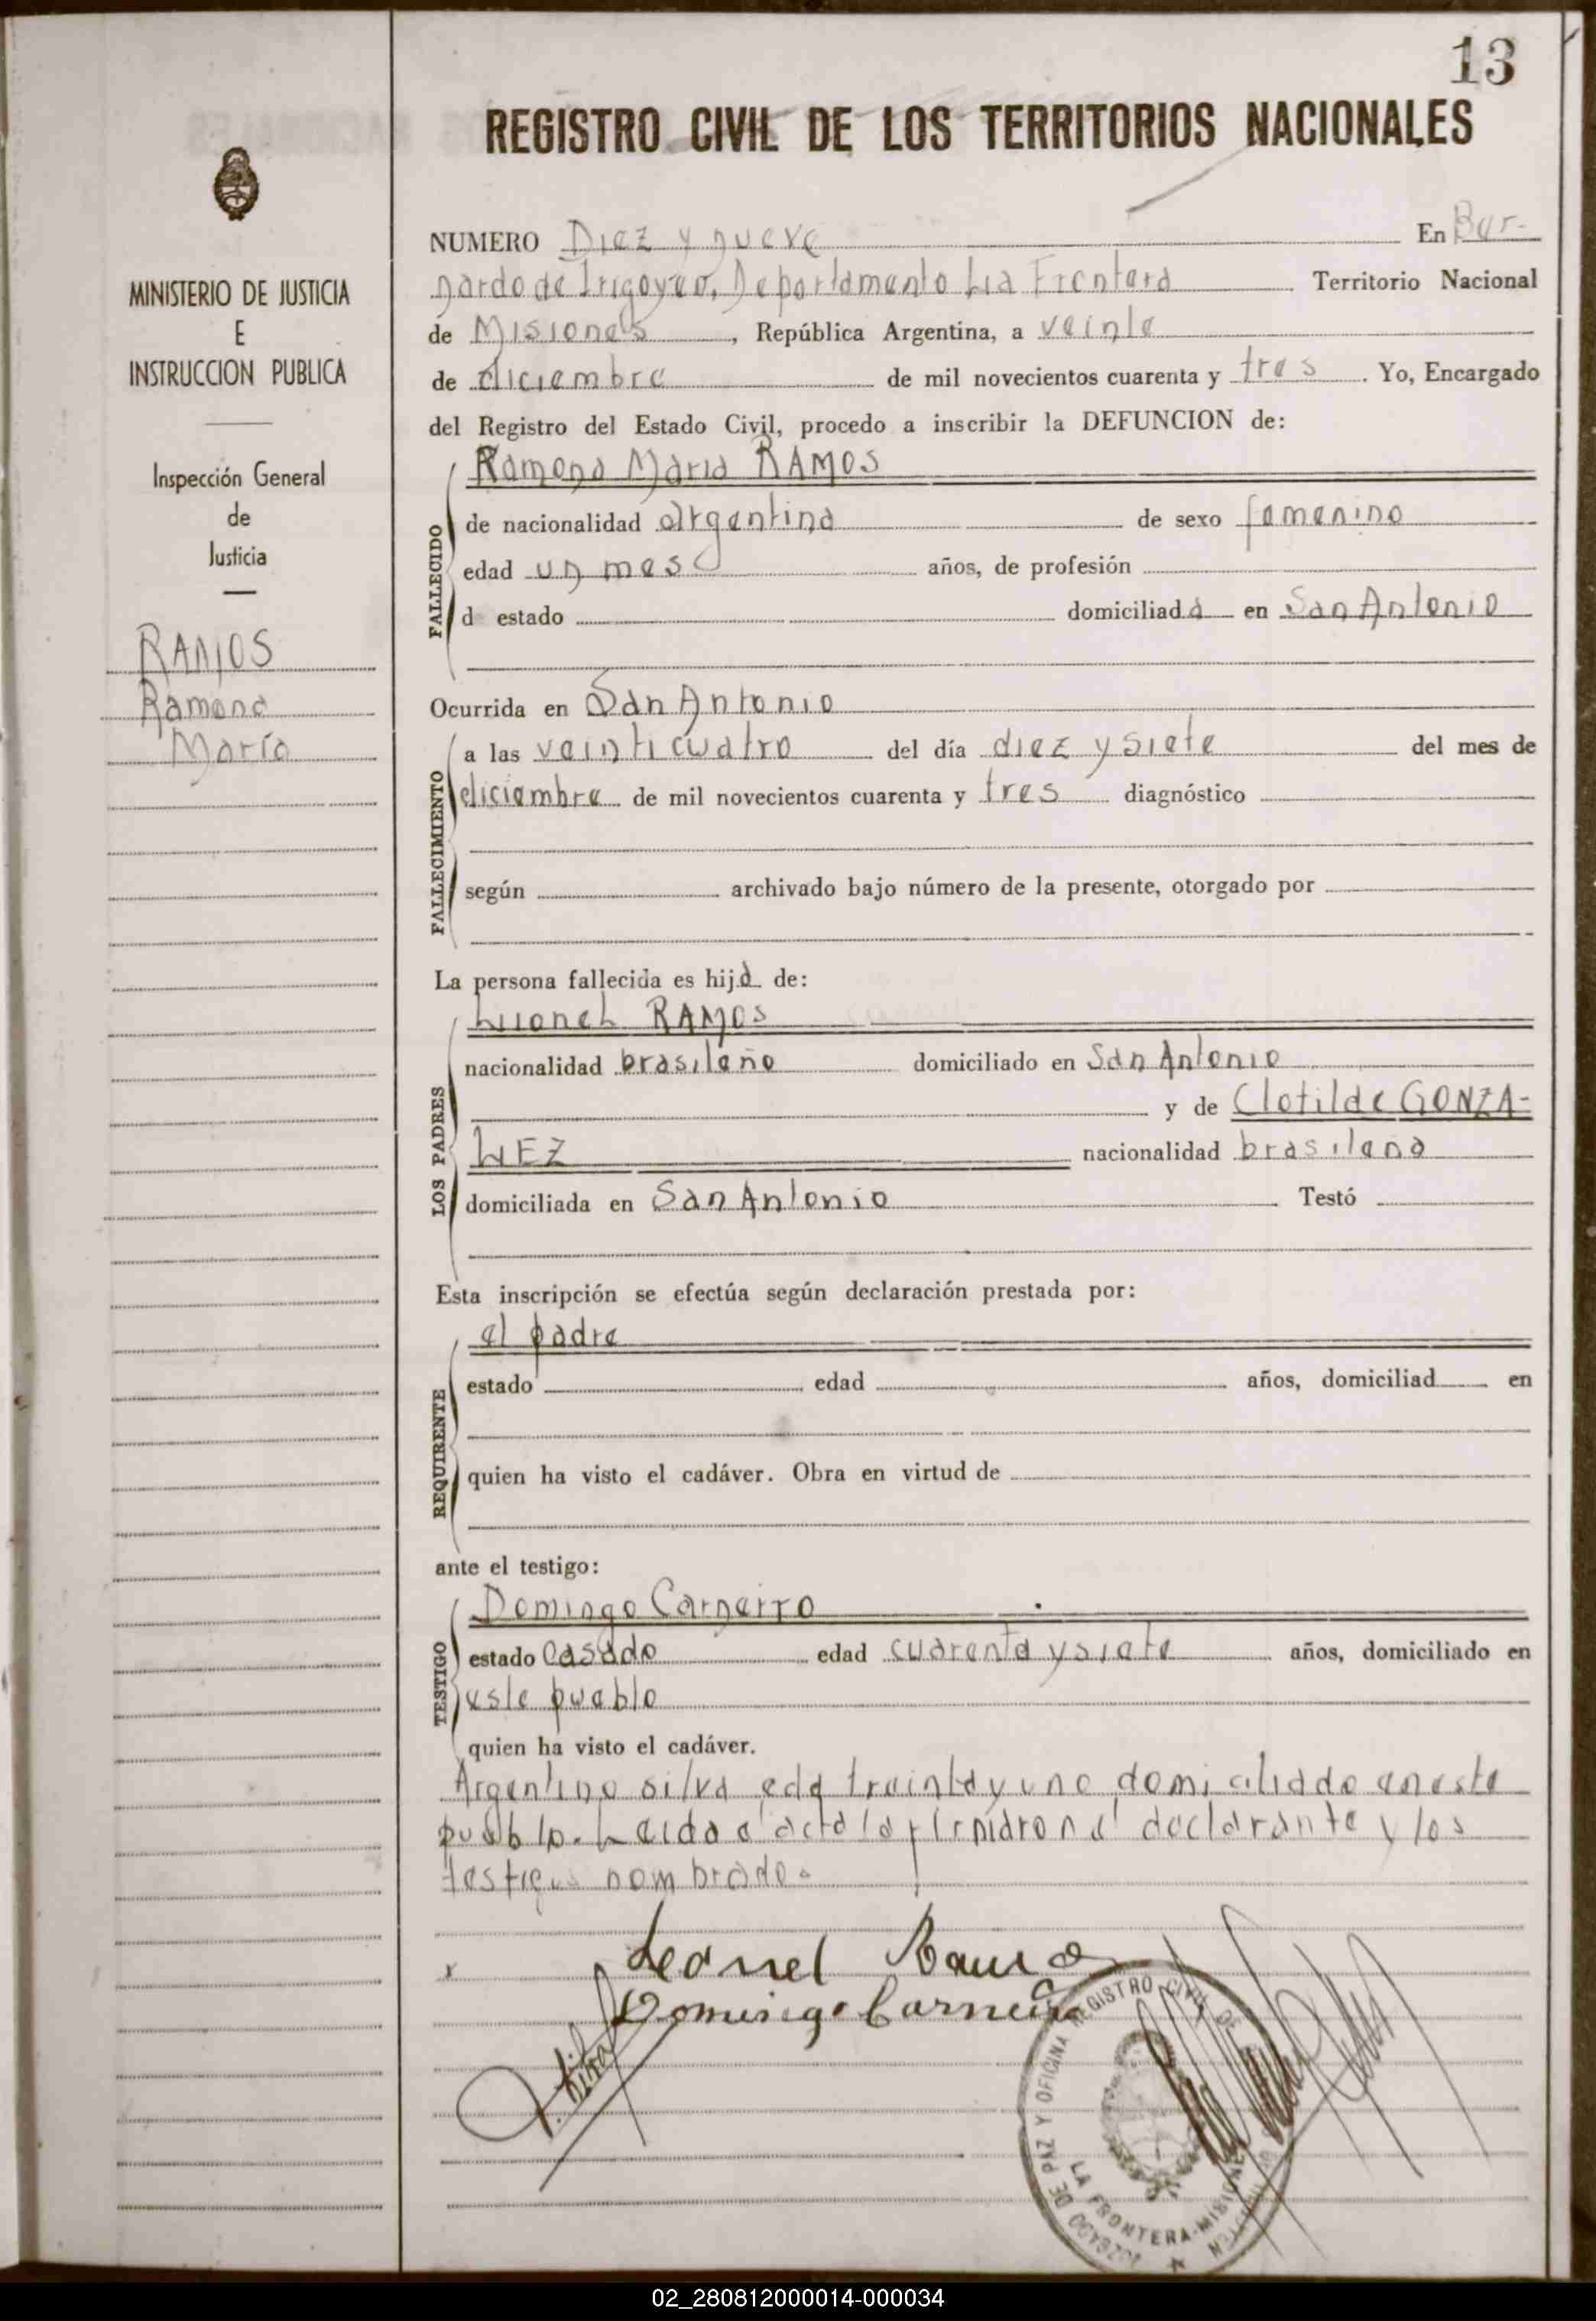 13
REGISTRO CIVIL DE LOS TERRITORIOS NACIONALES
MINISTERIO DE JUSTICIA
E
INSTRUCCION PUBLICA
Inspección General
de
Justicia
RAMOS
Ramona
María
NUMERO Diez y nueve En Ber-
nardo de Irigoyen, Departamento La Frontera Territorio Nacional
de Misiones, República Argentina, a veinte
de diciembre de mil novecientos cuarenta y tres. Yo, Encargado
del Registro del Estado Civil, procedo a inscribir la DEFUNCION de:
Ramona Maria RAMOS
FALLECIDO
de nacionalidad argentina de sexo femenino
edad un mes años, de profesión
d estado domiciliada en San Antonio
Ocurrida en San Antonio
FALLECIMIENTO
a las veinticuatro del día diez y siete del mes de
diciembre de mil novecientos cuarenta y tres diagnóstico
según archivado bajo número de la presente, otorgado por
La persona fallecida es hija de:
LOS PADRES
RAMOS
nacionalidad brasileño domiciliado en San Antonio
y de Clotilde GONZA-
LEZ nacionalidad brasileña
domiciliada en San Antonio Testó
Esta inscripción se efectúa según declaración prestada por:
el padre
REQUIRENTE
estado edad años, domiciliad en
quien ha visto el cadáver. Obra en virtud de
ante el testigo:
Domingo Carneiro
TESTIGO
estado casado edad cuarenta y siete años, domiciliado en
este pueblo
quien ha visto el cadáver.
Argentino silva edad treinta y uno domiciliado en este
pueblo. Leida el acta la firmaron el declarante y los
testigos nombrado.
x Leonel Ramos
Domingo Carneiro
A. Silva
JUZGADO DE PAZ Y OFICINA REGISTRO CIVIL DE
LA FRONTERA - MISIONES
02_280812000014-000034